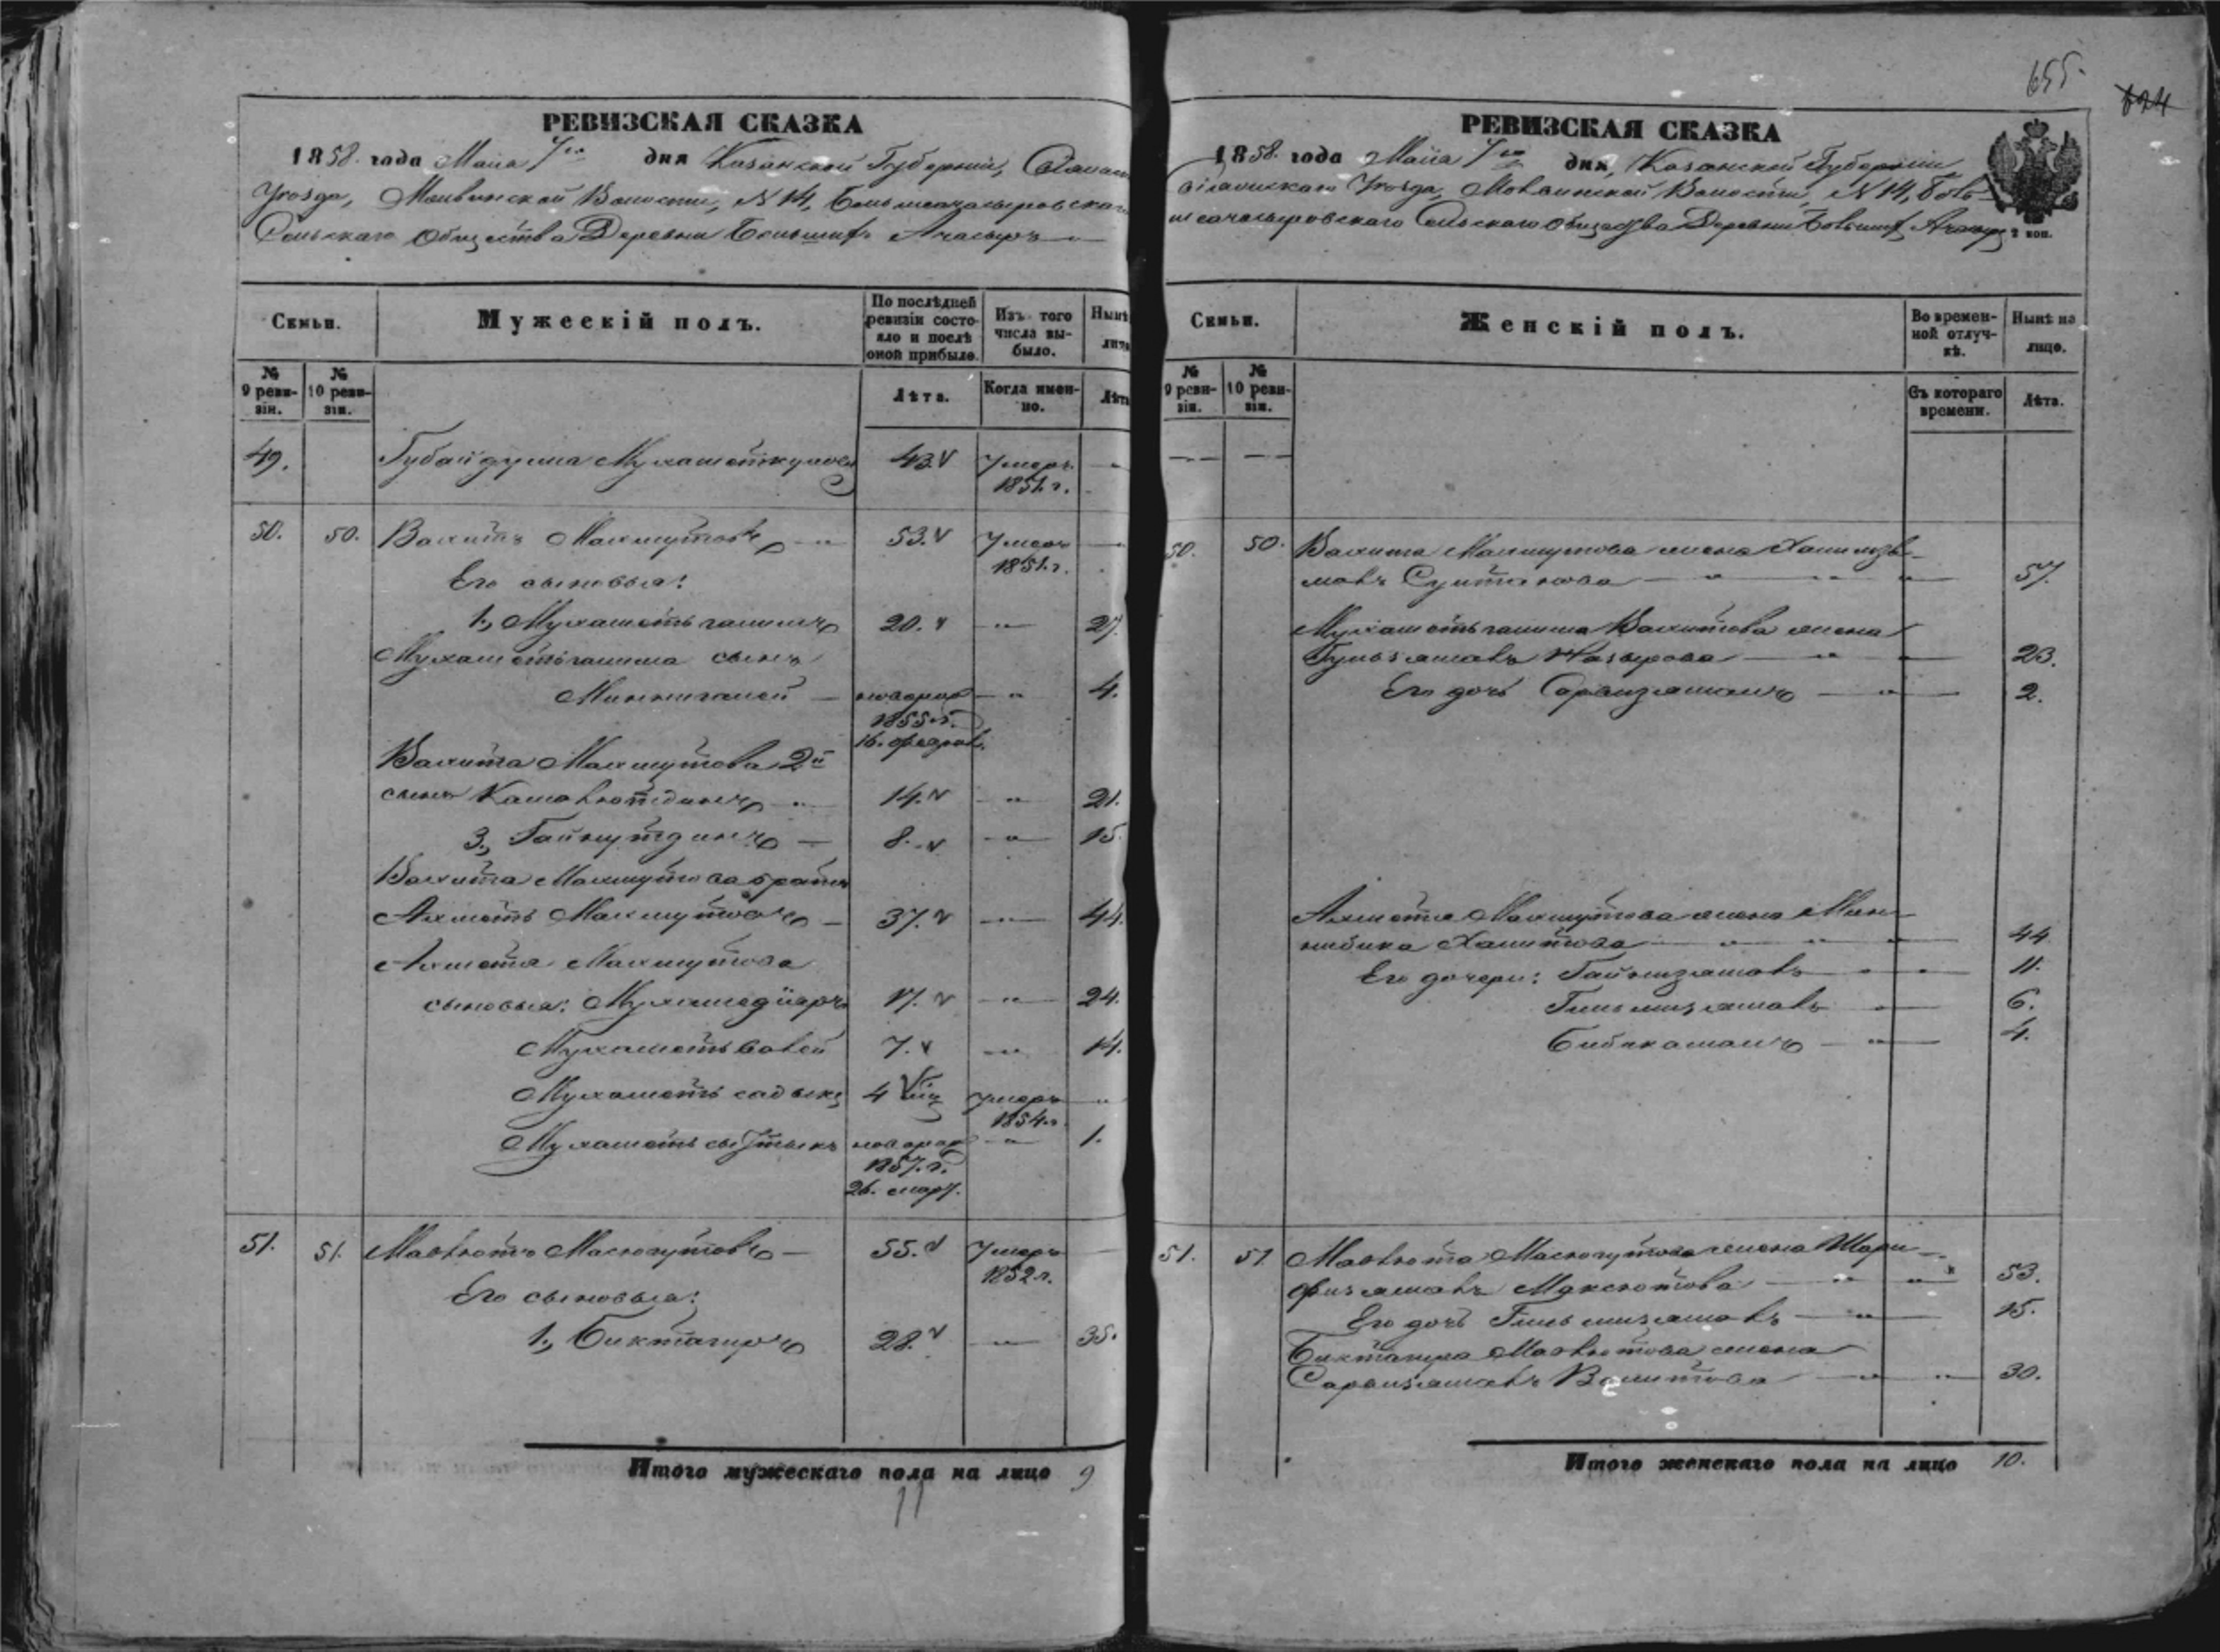 655.
624
РЕВИЗСКАЯ СКАЗКА
1858. года Маiя 7го дня Казанской Губернiи,
Уѣзда, Волости, N 14, Большеачасыровскаго
Сельскаго Общества Деревни Большихъ Ачасыръ
Семьи.
Мужескiй полъ.
По послѣдней ревизiи состояло и послѣ оной прибыло.
Изъ того числа выбыло.
Нынѣ
лицо
№ 9 ревизiи.
№ 10 ревизiи.
Лѣта.
Когда именно.
Лѣта
49. Губайдулла Мухаметкуловъ 43. Умеръ
1851. г.
50. 50. Вахитъ Махмутовъ 53. Умеръ
1851. г.
Его сыновья:
1., Мухаметьгалимъ 20. 27.
Мухаметьгалима сынъ
Миннигалей новорож 4.
1855 г.
16. феврал.
Вахита Махмутова 2й
сынъ Камалютдинъ 14. 21.
3., Гайнутдинъ 8. 15.
Вахита Махмутова братъ
Ахметъ Махмутовъ 37. 44.
Ахметя Махмутова
сыновья: Мухамедiяръ 17. 24.
Мухаметьвалей 7. 14.
Мухаметь садыкъ 4 Умеръ
1854. г.
Мухаметь новорож 1.
1857. г.
26. март.
51. 51. Мавлютъ Масогутовъ 55. Умеръ
1852 г.
Его сыновья:
1., Биктагиръ 28. 35.
Итого мужескаго пола на лицо 9
11
РЕВИЗСКАЯ СКАЗКА
1858. года Маiя 7го дня, Казанской Губернiи
Уѣзда, Волости, N 14, Боль-
шеачасыровскаго Сельскаго Общества Деревни Большихъ Ачасыръ
2 коп.
Семьи.
Женскiй полъ.
Во временной отлучкѣ.
Нынѣ на лицо.
№ 9 ревизiи.
№ 10 ревизiи.
Съ котораго времени.
Лѣта.
50. 50. Вахита Махмутова жена
Султанова 57.
Мухаметьгалима Вахитова жена
Назырова 23.
Его дочь 2.
Ахметя Махмутова жена Мин-
нибика Хамитова 44
Его дочери: Гайнизямалъ 11.
Гильмизямалъ 6.
Бибикамалъ 4.
51. 51 Мавлюта Масогутова жена Шари-
физямалъ Максютова 53.
Его дочь Гильмизямалъ 15.
Биктагира Мавлютова жена
Сарвизямалъ Валитова 30.
Итого женскаго пола на лицо 10.